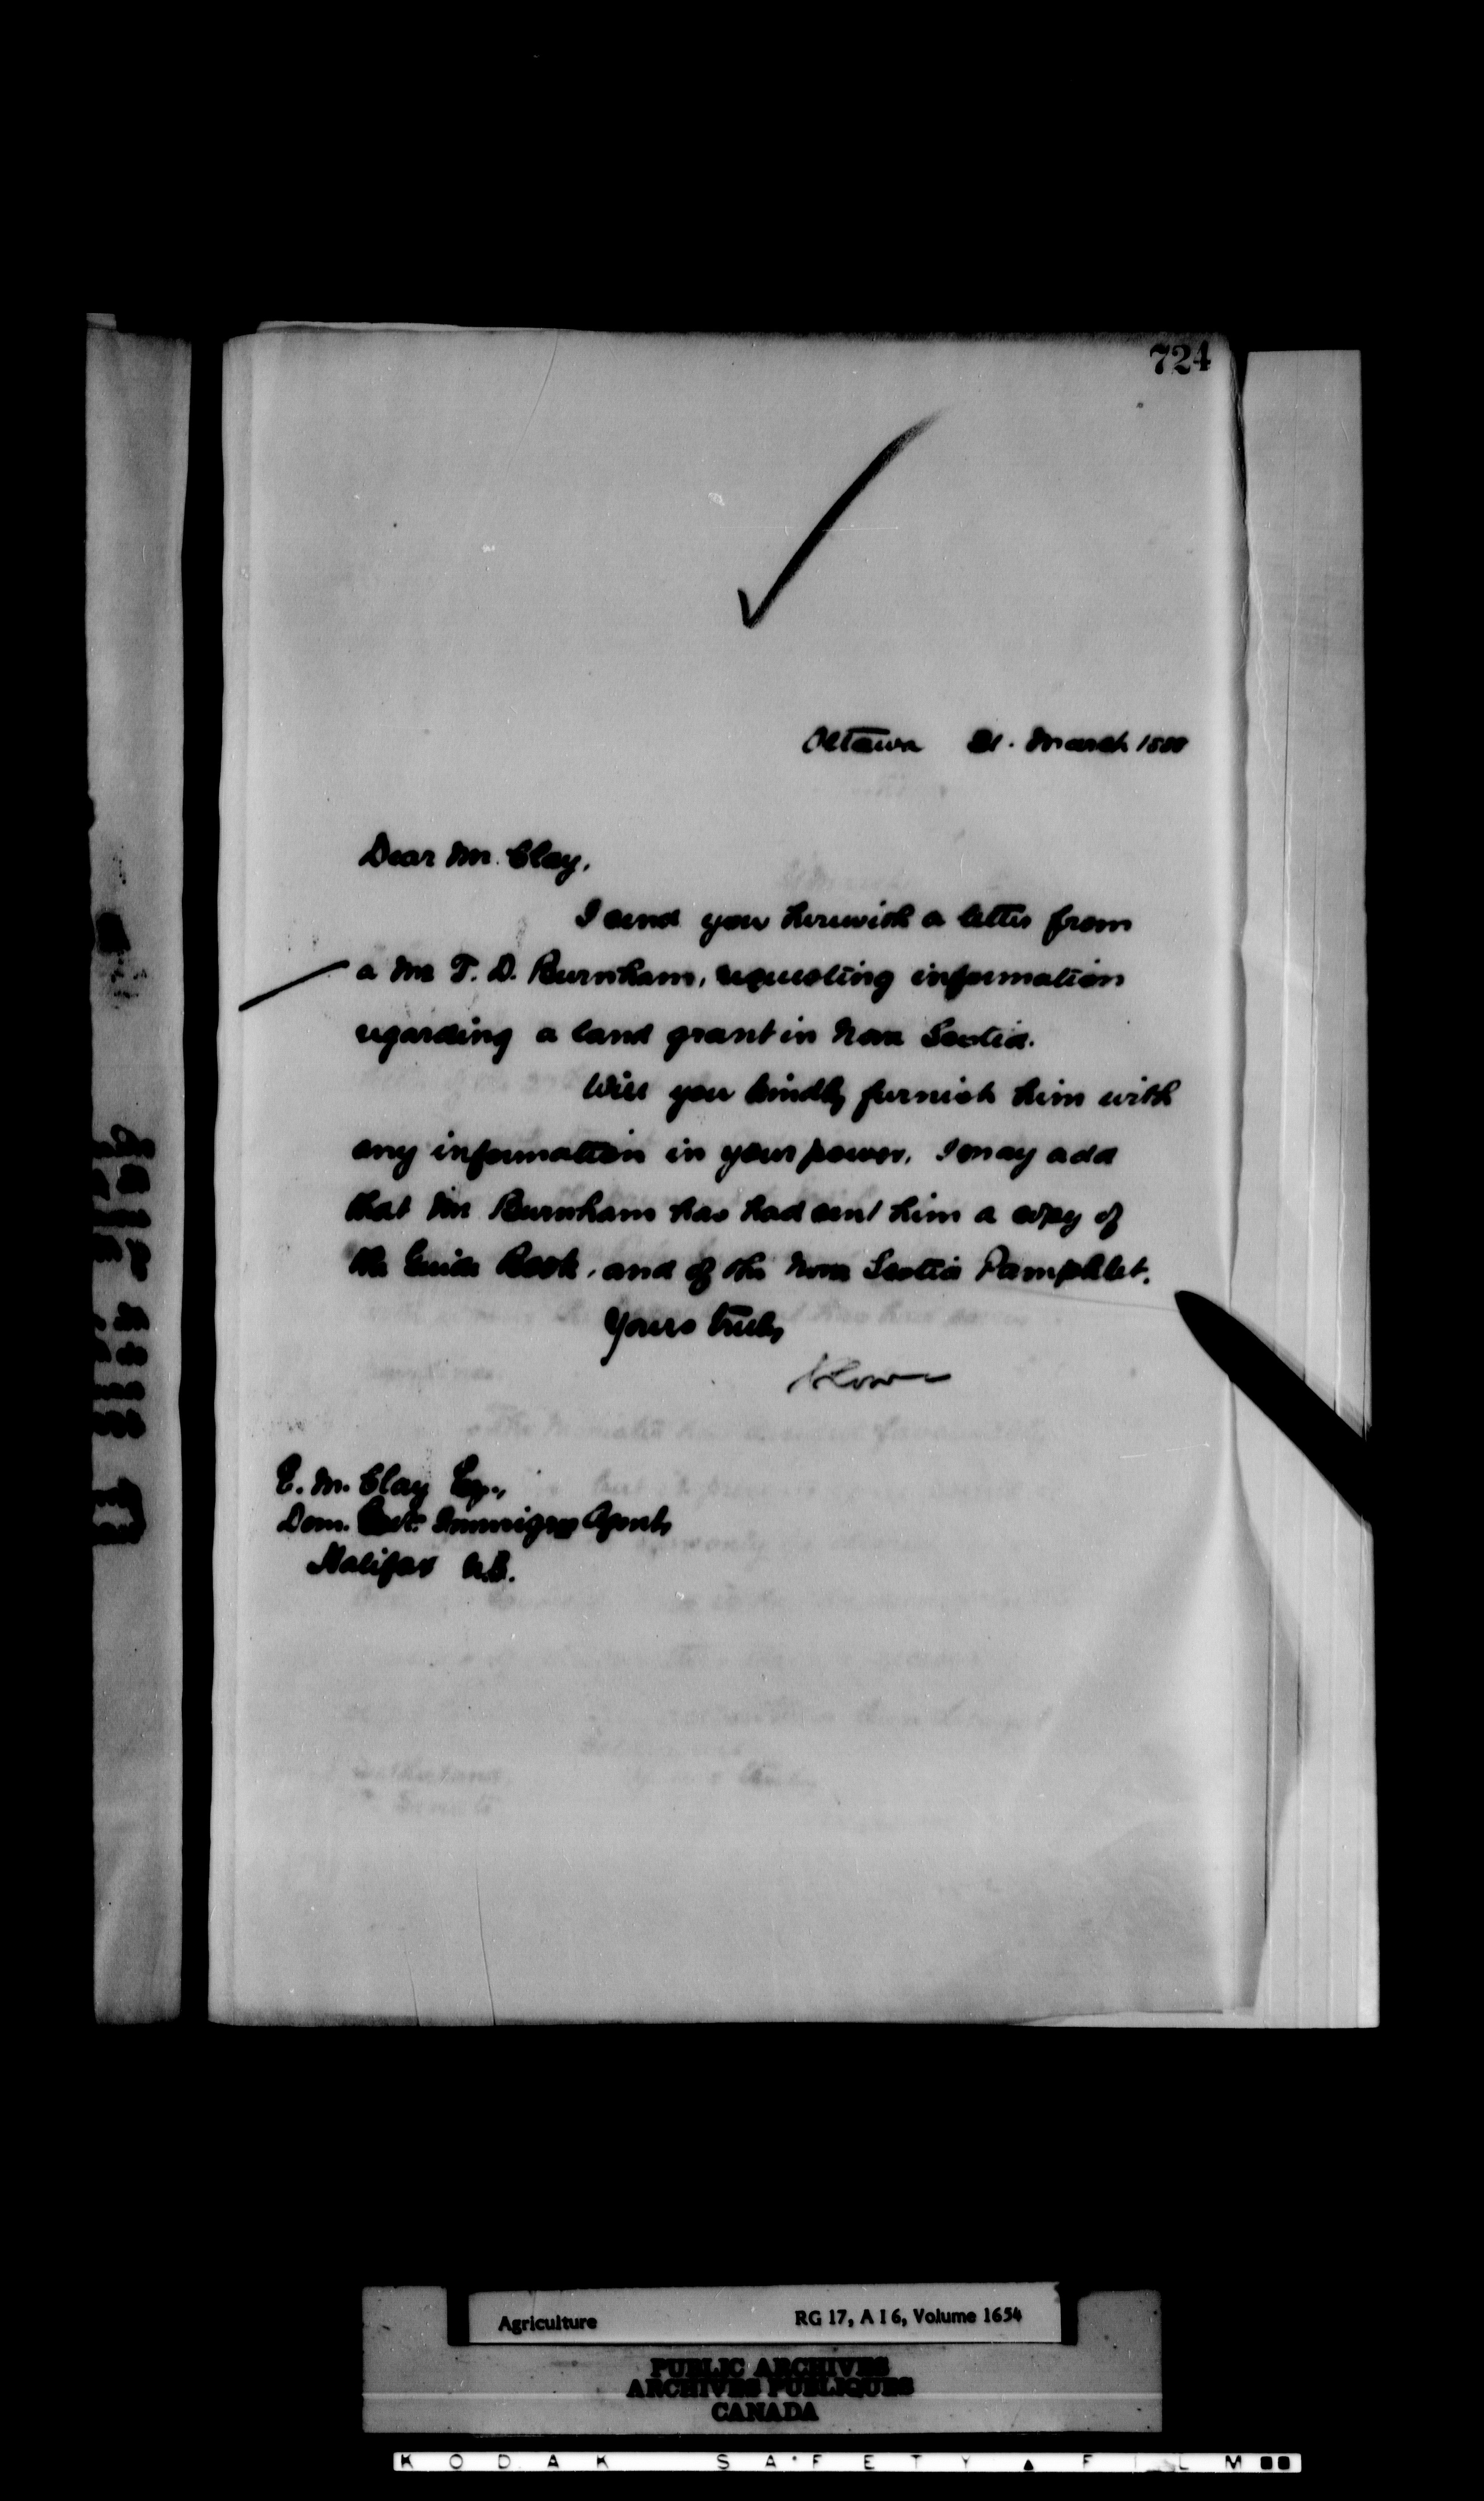 724
Ottawa 21. March 1888
Dear Mr. Clay,
I send you herewith a letter from
a Mr T. D. Burnham, requesting information
regarding a land grant in Nova Scotia.
Will you kindly furnish him with
any information in your power. I may add
that Mr Burnham has had sent him a copy of
the Guide Book, and of the Nova Scotia Pamphlet.
Yours truly
E. M. Clay Esq.,
Dom. Govt. Immigrn Agent,
Halifax N.S.
Agriculture RG 17, A I 6, Volume 1654
PUBLIC ARCHIVES
ARCHIVES PUBLIQUES
CANADA
KODAK SAFETY FILM